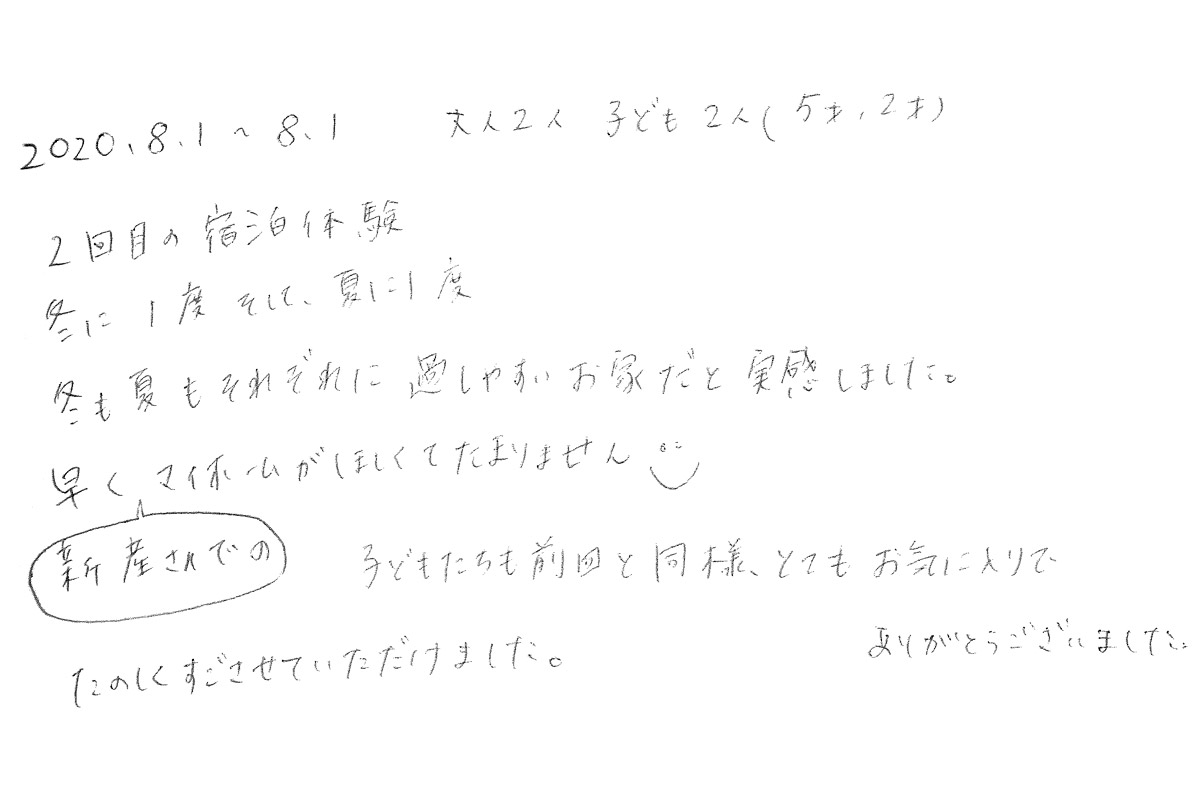 2020.8.1～8.1　大人2人 子ども2人(5才,2才)
2回目の宿泊体験
冬に1度そして、夏に1度
冬も夏もそれぞれに過しやすいお家だと実感しました。
早くマイホームがほしくてたまりません
新産さんでの
子どもたちも前回と同様、とてもお気に入りで
たのしくすごさせていただけました。
ありがとうございました。